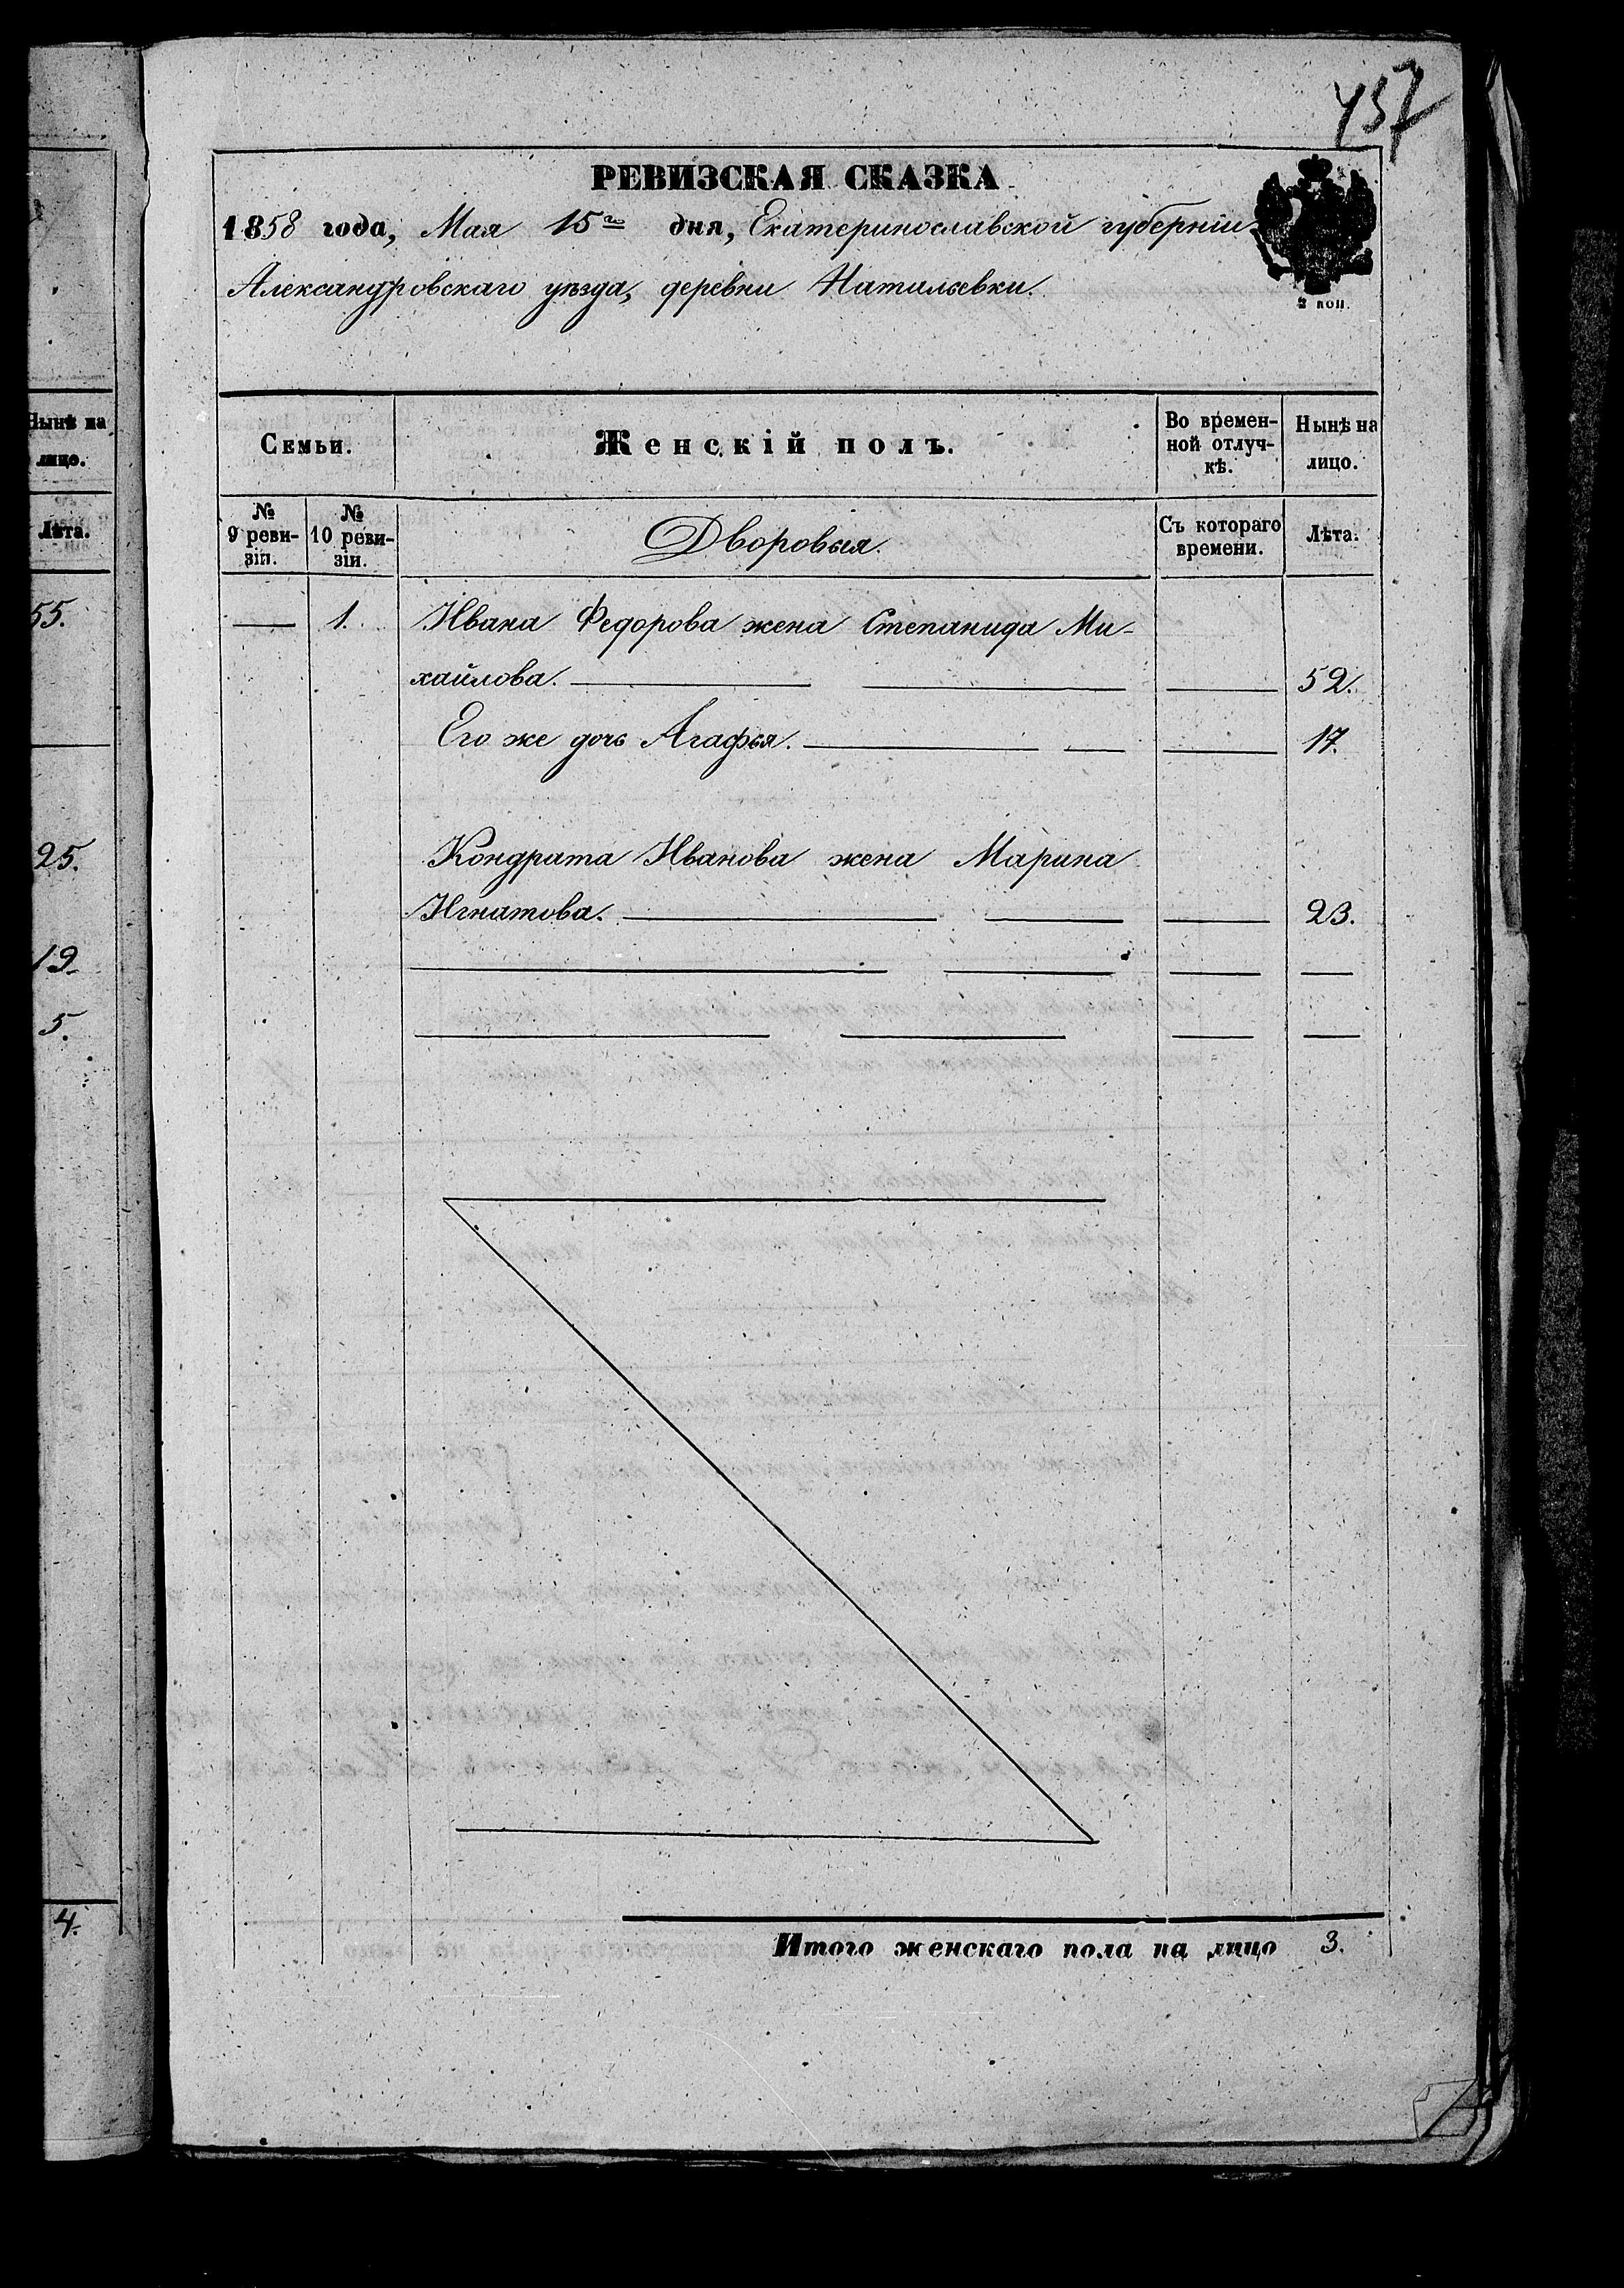 457
РЕВИЗСКАЯ СКАЗКА
1858 года, Мая 15го дня, Екатеринославской губерніи
Александровскаго уѣзда, деревни Натальевки.
2 коп.
Нынѣ на
лицо.
Лѣта.
55.
25.
19.
5.
4.
Семьи.
Женскій полъ.
Во времен-
ной отлуч-
кѣ.
Нынѣ на
лицо.
№
9 реви-
зіи.
№
10 реви-
зіи.
Дворовыя.
Съ котораго
времени.
Лѣта.
1. Ивана Федорова жена Степанида Ми-
хайлова. 52.
Его же дочь Агафья. 17.
Кондрата Иванова жена Марина
Игнатова. 23.
Итого женскаго пола на лицо 3.